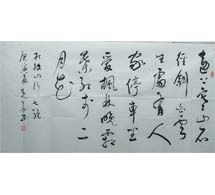 远上寒山石
径斜白云
生处有人
家停车坐
爱枫林晚霜
叶红于二
月花
杜牧山行七绝